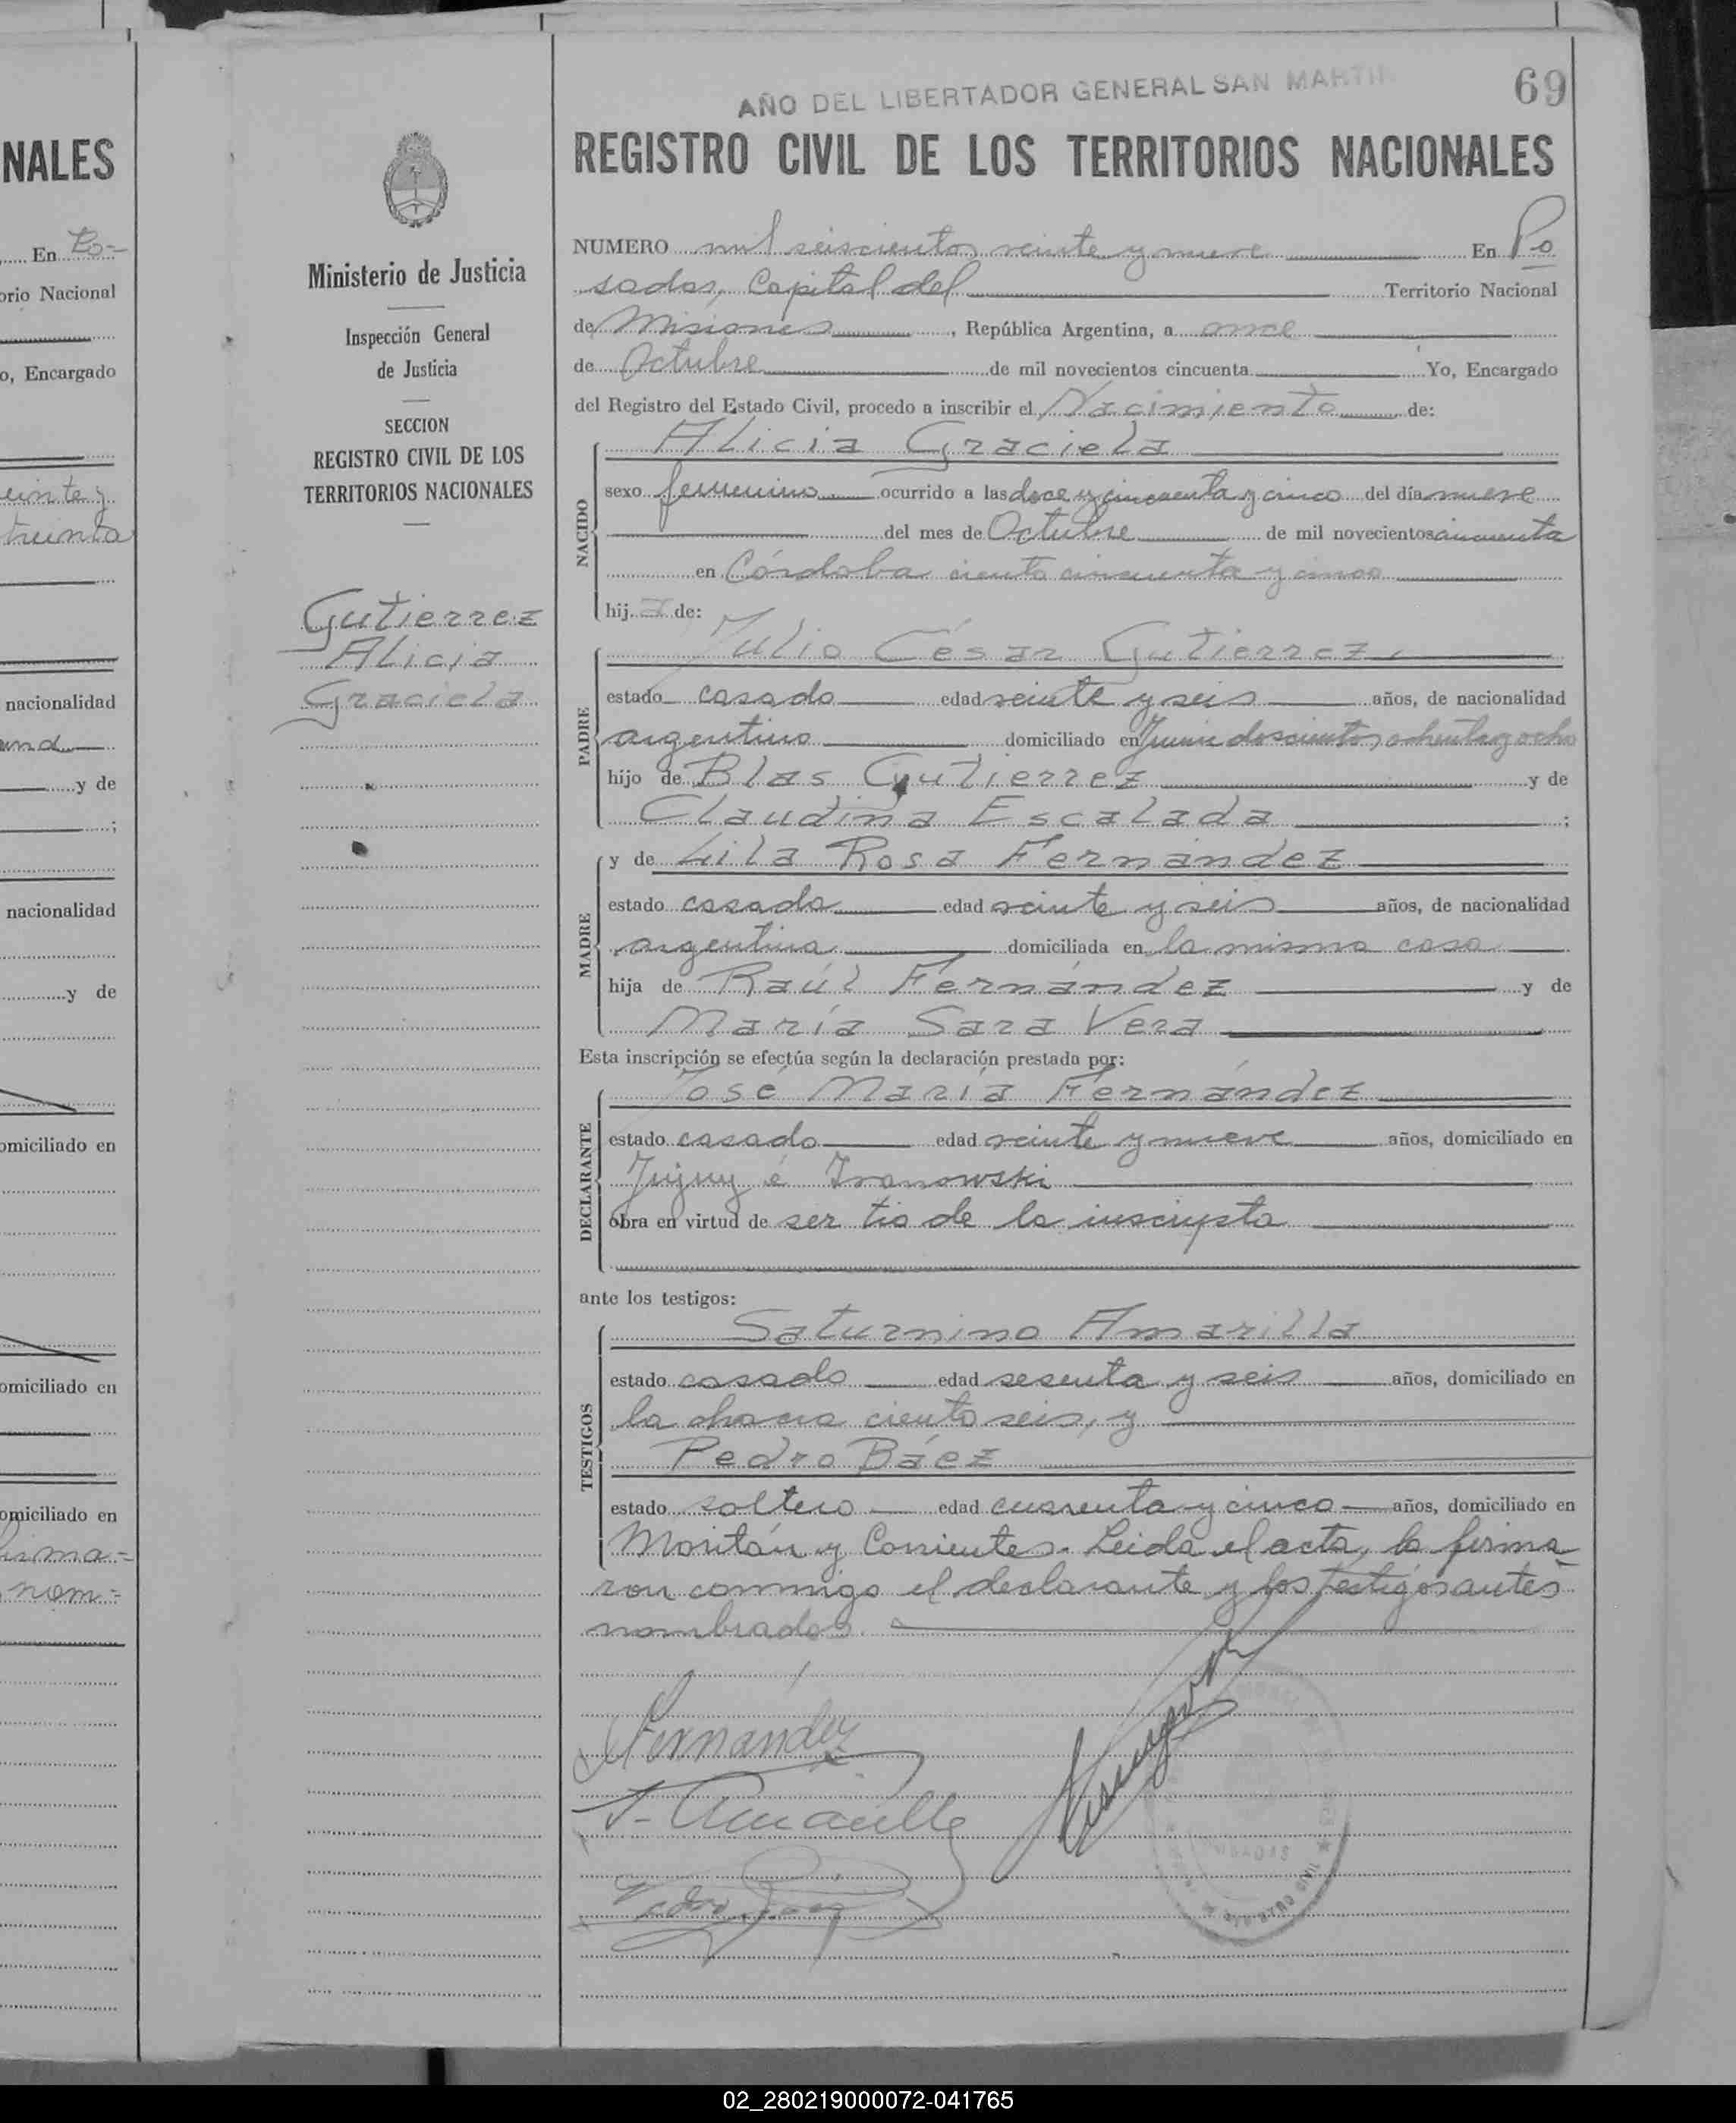 NALES
En Po=
orio Nacional
o, Encargado
einte y
treinta
nacionalidad
y de
;
nacionalidad
y de
omiciliado en
omiciliado en
omiciliado en
firma=
nom=
Ministerio de Justicia
Inspección General
de Justicia
SECCION
REGISTRO CIVIL DE LOS
TERRITORIOS NACIONALES
Gutierrez
Alicia
Graciela
AÑO DEL LIBERTADOR GENERAL SAN MARTIN
69
REGISTRO CIVIL DE LOS TERRITORIOS NACIONALES
NUMERO mil seiscientos veinte y nueve En Po
sadas, Capital del Territorio Nacional
de Misiones, República Argentina, a once
de Octubre de mil novecientos cincuenta Yo, Encargado
del Registro del Estado Civil, procedo a inscribir el Nacimiento de:
NACIDO
Alicia Graciela
sexo femenino ocurrido a las doce y cincuenta y cinco del día nueve
del mes de Octubre de mil novecientos cincuenta
en Córdoba ciento cincuenta y cinco
hij a de:
PADRE
Julio César Gutierrez
estado casado edad veinte y seis años, de nacionalidad
argentino domiciliado en Junin doscientos ochenta y ocho
hijo de Blas Gutierrez y de
Claudina Escalada ;
MADRE
y de Lila Rosa Fernández
estado casada edad veinte y seis años, de nacionalidad
argentina domiciliada en la misma casa
hija de Raúl Fernández y de
María Sara Vera
Esta inscripción se efectúa según la declaración prestada por:
DECLARANTE
José María Fernández
estado casado edad veinte y nueve años, domiciliado en
Jujuy é Ivanowski
obra en virtud de ser tio de la inscripta
ante los testigos:
TESTIGOS
Saturnino Amarilla
estado casado edad sesenta y seis años, domiciliado en
la chacra ciento seis, y
Pedro Báez
estado soltero edad cuarenta y cinco años, domiciliado en
Moritán y Corrientes. Leida el acta, la firma=
ron conmigo el declarante y los testigos antes
nombrados.
Fernández
S. Amarilla
Pedro Báez
02_280219000072-041765